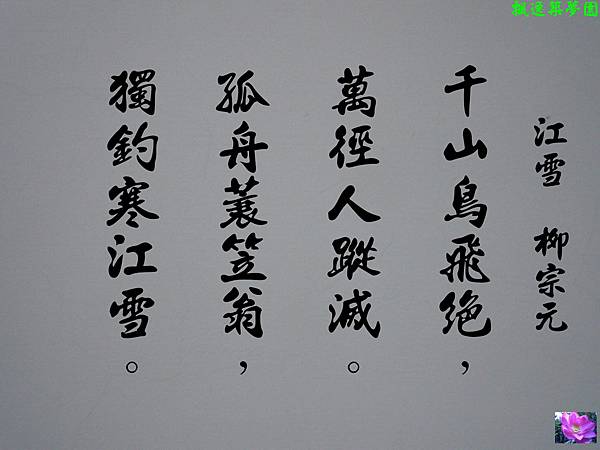 飄逸築夢園
江雪 柳宗元
千山鳥飛絕，
萬徑人蹤滅。
孤舟蓑笠翁，
獨釣寒江雪。